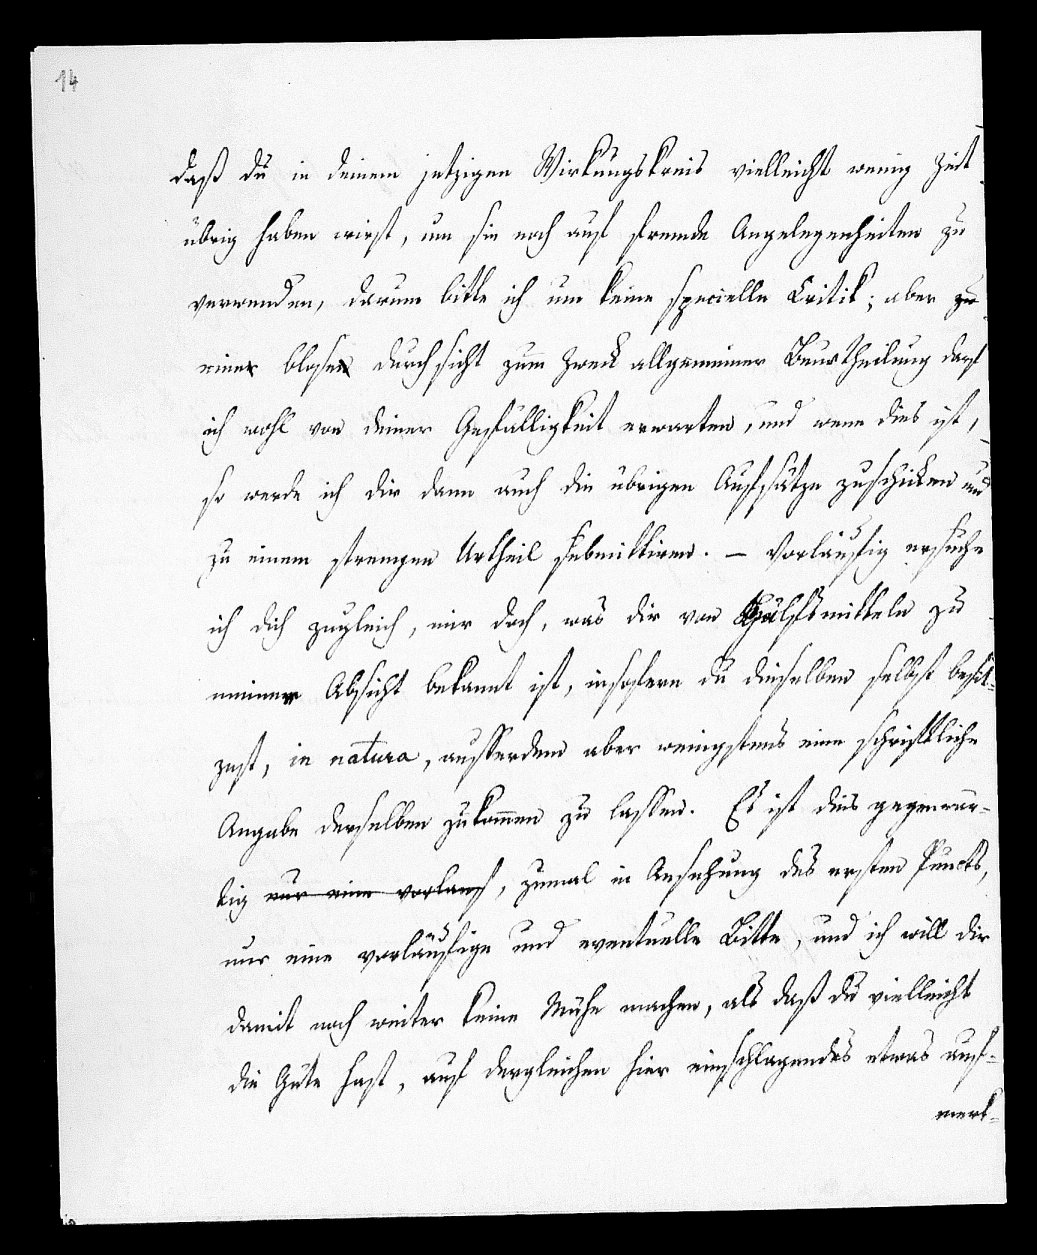 14
daß du in deinem jetzigen Wirkungskreis vielleicht wenig Zeit
übrig haben wirst, um sie noch auf fremde Angelegenheiten zu
verwenden, darum bitte ich um keine specielle Critik; aber zu
einer blosen Durchsicht zum Zweck allgemeiner Beurtheilung darf
ich wohl von deiner Gefälligkeit erwarten, und wenn dies ist,
so werde ich dir dann auch die übrigen Aufsätze zuschicken und
zu einem strengen Urtheil submittiren. – Vorläufig ersuche
ich dich zugleich, mir doch, was dir von Hülfsmitteln zu
meiner Absicht bekannt ist, insofern du dieselben selbst besit-
zest, in natura, ausserdem aber wenigstens eine schriftliche
Angabe derselben zukom̄en zu lassen. Es ist dies gegenwär-
tig nur eine vorlauf, zumal in Ansehung des ersten Puncts,
nur eine vorläufige und eventuelle Bitte, und ich will dir
damit noch weiter keine Mühe machen, als daß du vielleicht
die Güte hast, auf dergleichen hier einschlagendes etwas auf-
merk-